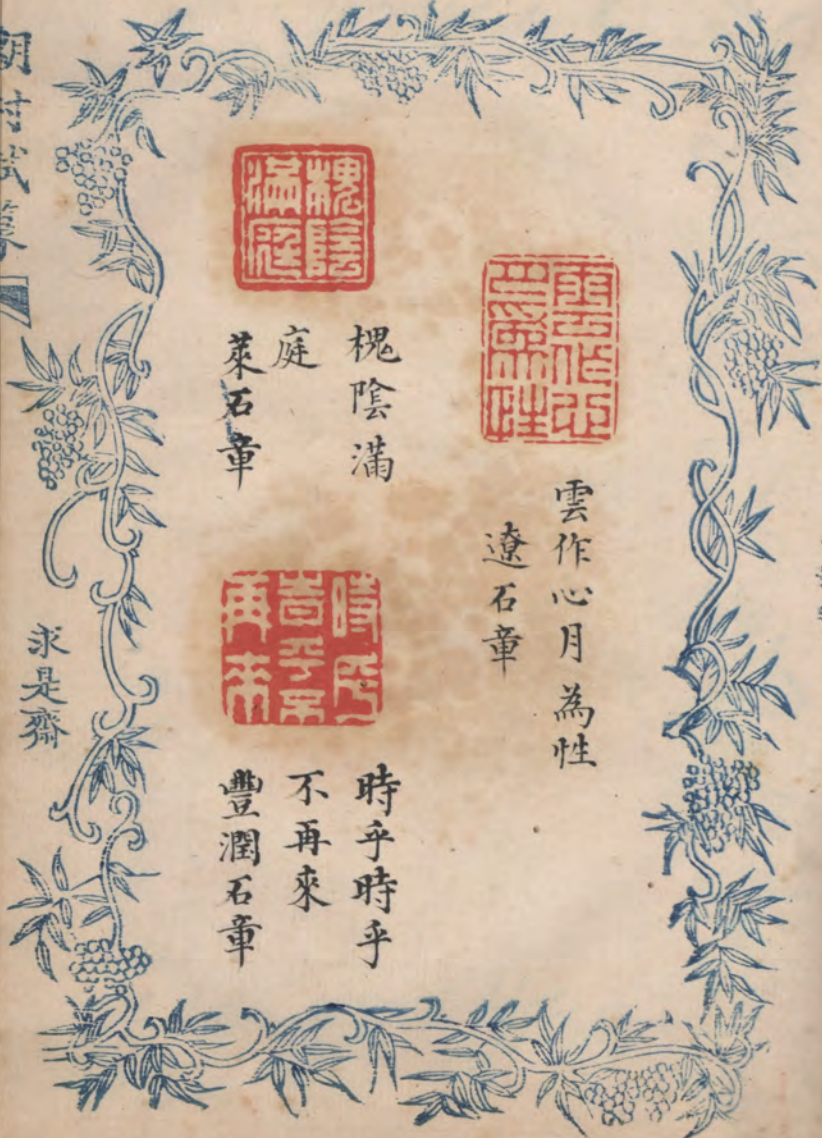 雲作心
月為性
雲作心月為性
遼石章
槐陰
滿庭
槐陰滿
庭
萊石章
時乎
旹乎不
再來
時乎時乎
不再來
豐潤石章
求是齋